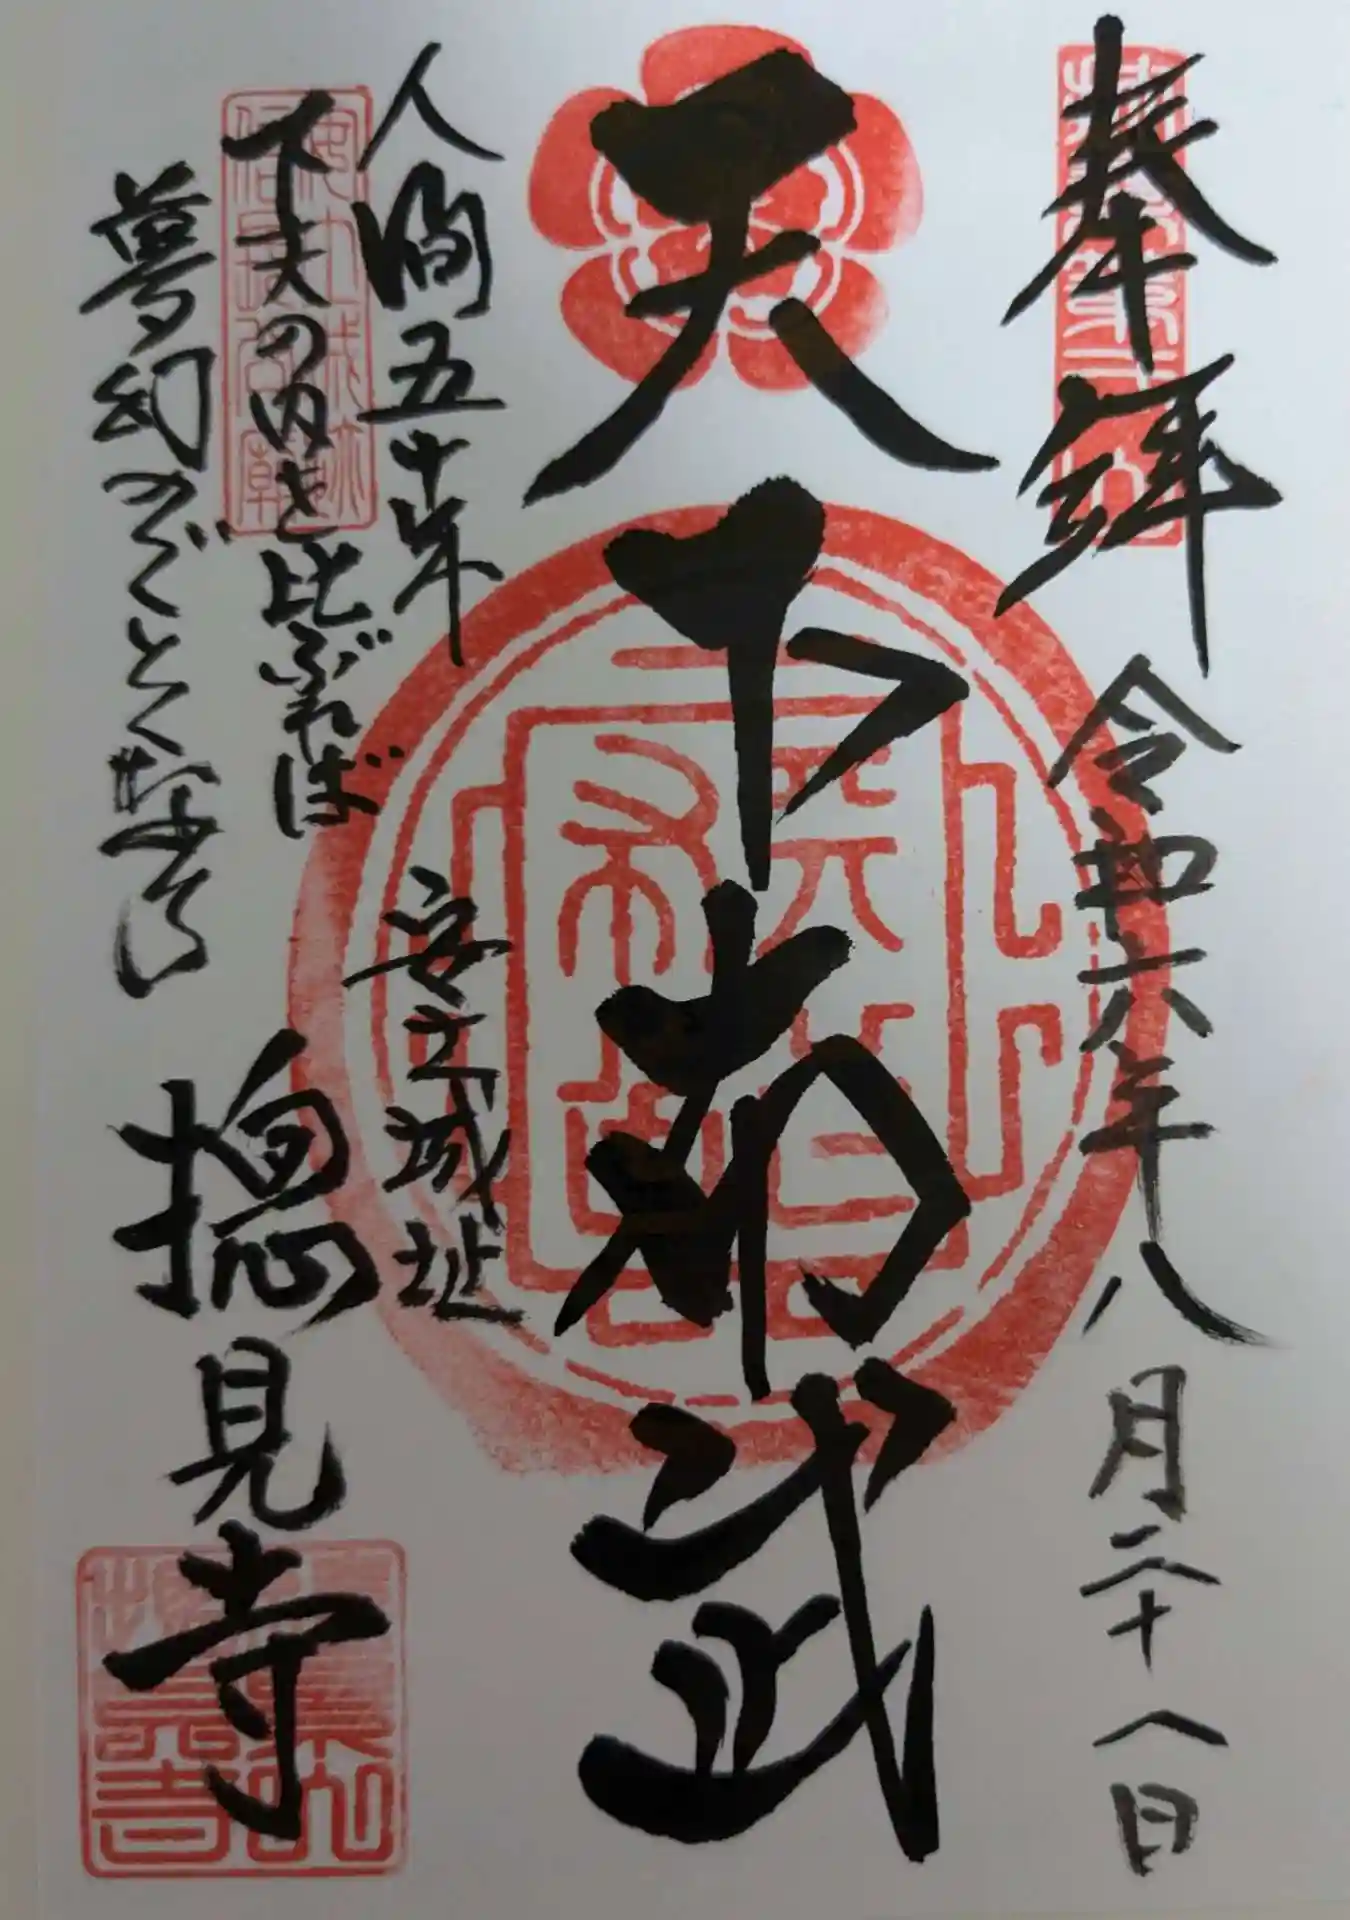 奉拝 令和六年八月二十八日
天下布武
人間五十年
下天の内を比ぶれば
夢幻のごとくなり
安土城址
摠見寺